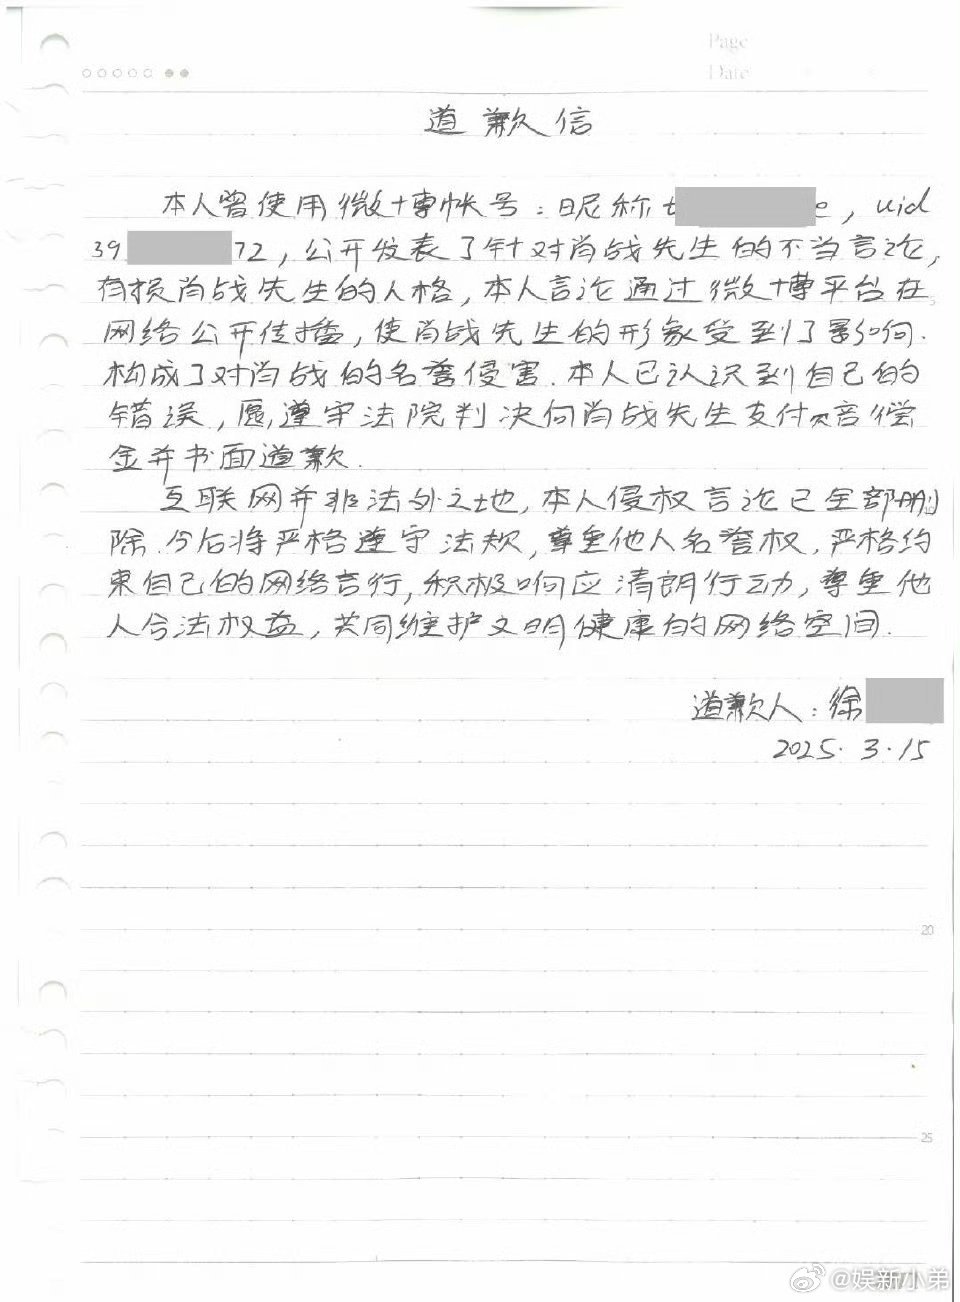 Page
Date
道歉信
本人曾使用微博帐号：昵称t e，uid
39 72，公开发表了针对肖战先生的不当言论，
有损肖战先生的人格，本人言论通过微博平台在
网络公开传播，使肖战先生的形象受到了影响.
构成了对肖战的名誉侵害.本人已认识到自己的
错误，愿遵守法院判决向肖战先生支付 偿
金并书面道歉.
互联网并非法外之地，本人侵权言论已全部删
除.今后将严格遵守法规，尊重他人名誉权，严格约
束自己的网络言行，积极响应清朗行动，尊重他
人合法权益，共同维护文明健康的网络空间.
道歉人：徐
2025.3.15
20
25
@娱新小弟